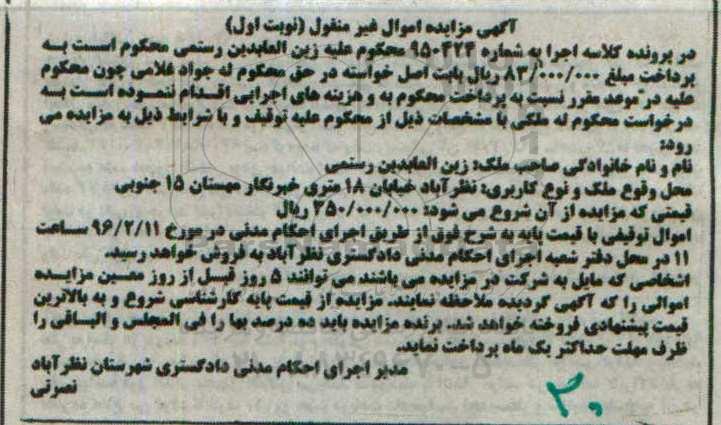 آگهی مزایده اموال غیر منقول (نوبت اول)
در پرونده کلاسه اجرا به شماره ۹۵۰۴۲۴ محکوم علیه زین العابدین رستمی محکوم است به
پرداخت مبلغ ۸۳/۰۰۰/۰۰۰ ریال بابت اصل خواسته در حق محکوم له جواد غلامی چون محکوم
علیه در موعد مقرر نسبت به پرداخت محکوم به و هزینه های اجرایی اقدام ننموده است به
درخواست محکوم له ملکی با مشخصات ذیل از محکوم علیه توقیف و با شرایط ذیل به مزایده می
رود:
نام و نام خانوادگی صاحب ملک: زین العابدین رستمی
محل وقوع ملک و نوع کاربری: نظرآباد خیابان ۱۸ متری خبرنگار مهستان ۱۵ جنوبی
قیمتی که مزایده از آن شروع می شود: ۲۵۰/۰۰۰/۰۰۰ ریال
اموال توقیفی با قیمت پایه به شرح فوق از طریق اجرای احکام مدنی در مورخ ۹۶/۲/۱۱ ساعت
۱۱ در محل دفتر شعبه اجرای احکام مدنی دادگستری نظرآباد به فروش خواهد رسید.
اشخاصی که مایل به شرکت در مزایده می باشند می توانند ۵ روز قبل از روز معین مزایده
اموالی را که آگهی گردیده ملاحظه نمایند. مزایده از قیمت پایه کارشناسی شروع و به بالاترین
قیمت پیشنهادی فروخته خواهد شد. برنده مزایده باید ده درصد بها را فی المجلس و الباقی را
ظرف مهلت حداکثر یک ماه پرداخت نماید.
مدیر اجرای احکام مدنی دادگستری شهرستان نظرآباد
نصرتی